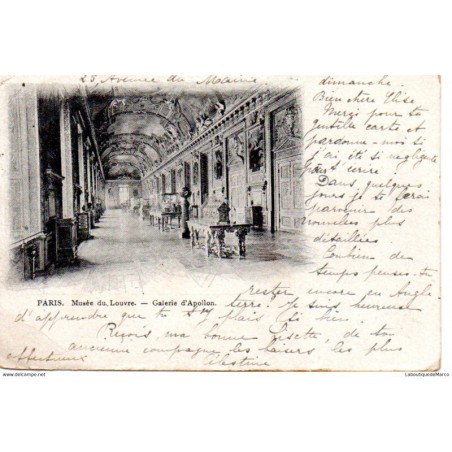 25, Avenue du Maine
dimanche
Bien chère Lise
Merci pour ta
gentille carte et
pardonne-moi si
j'ai été si négligente
pour t'écrire!
Dans quelques
jours je te ferai
parvenir des
nouvelles plus
détaillées.
Combien de
temps penses-tu
rester encore en Angle
terre! Je suis heureuse
d'apprendre que tu t'y plais si bien.
Reçois, ma bonne Lisette, de ton
ancienne compagne les baisers les plus
affectueux
Célestine
PARIS. Musée du Louvre. — Galerie d'Apollon.
www.delcampe.net
LaboutiquedeMarco